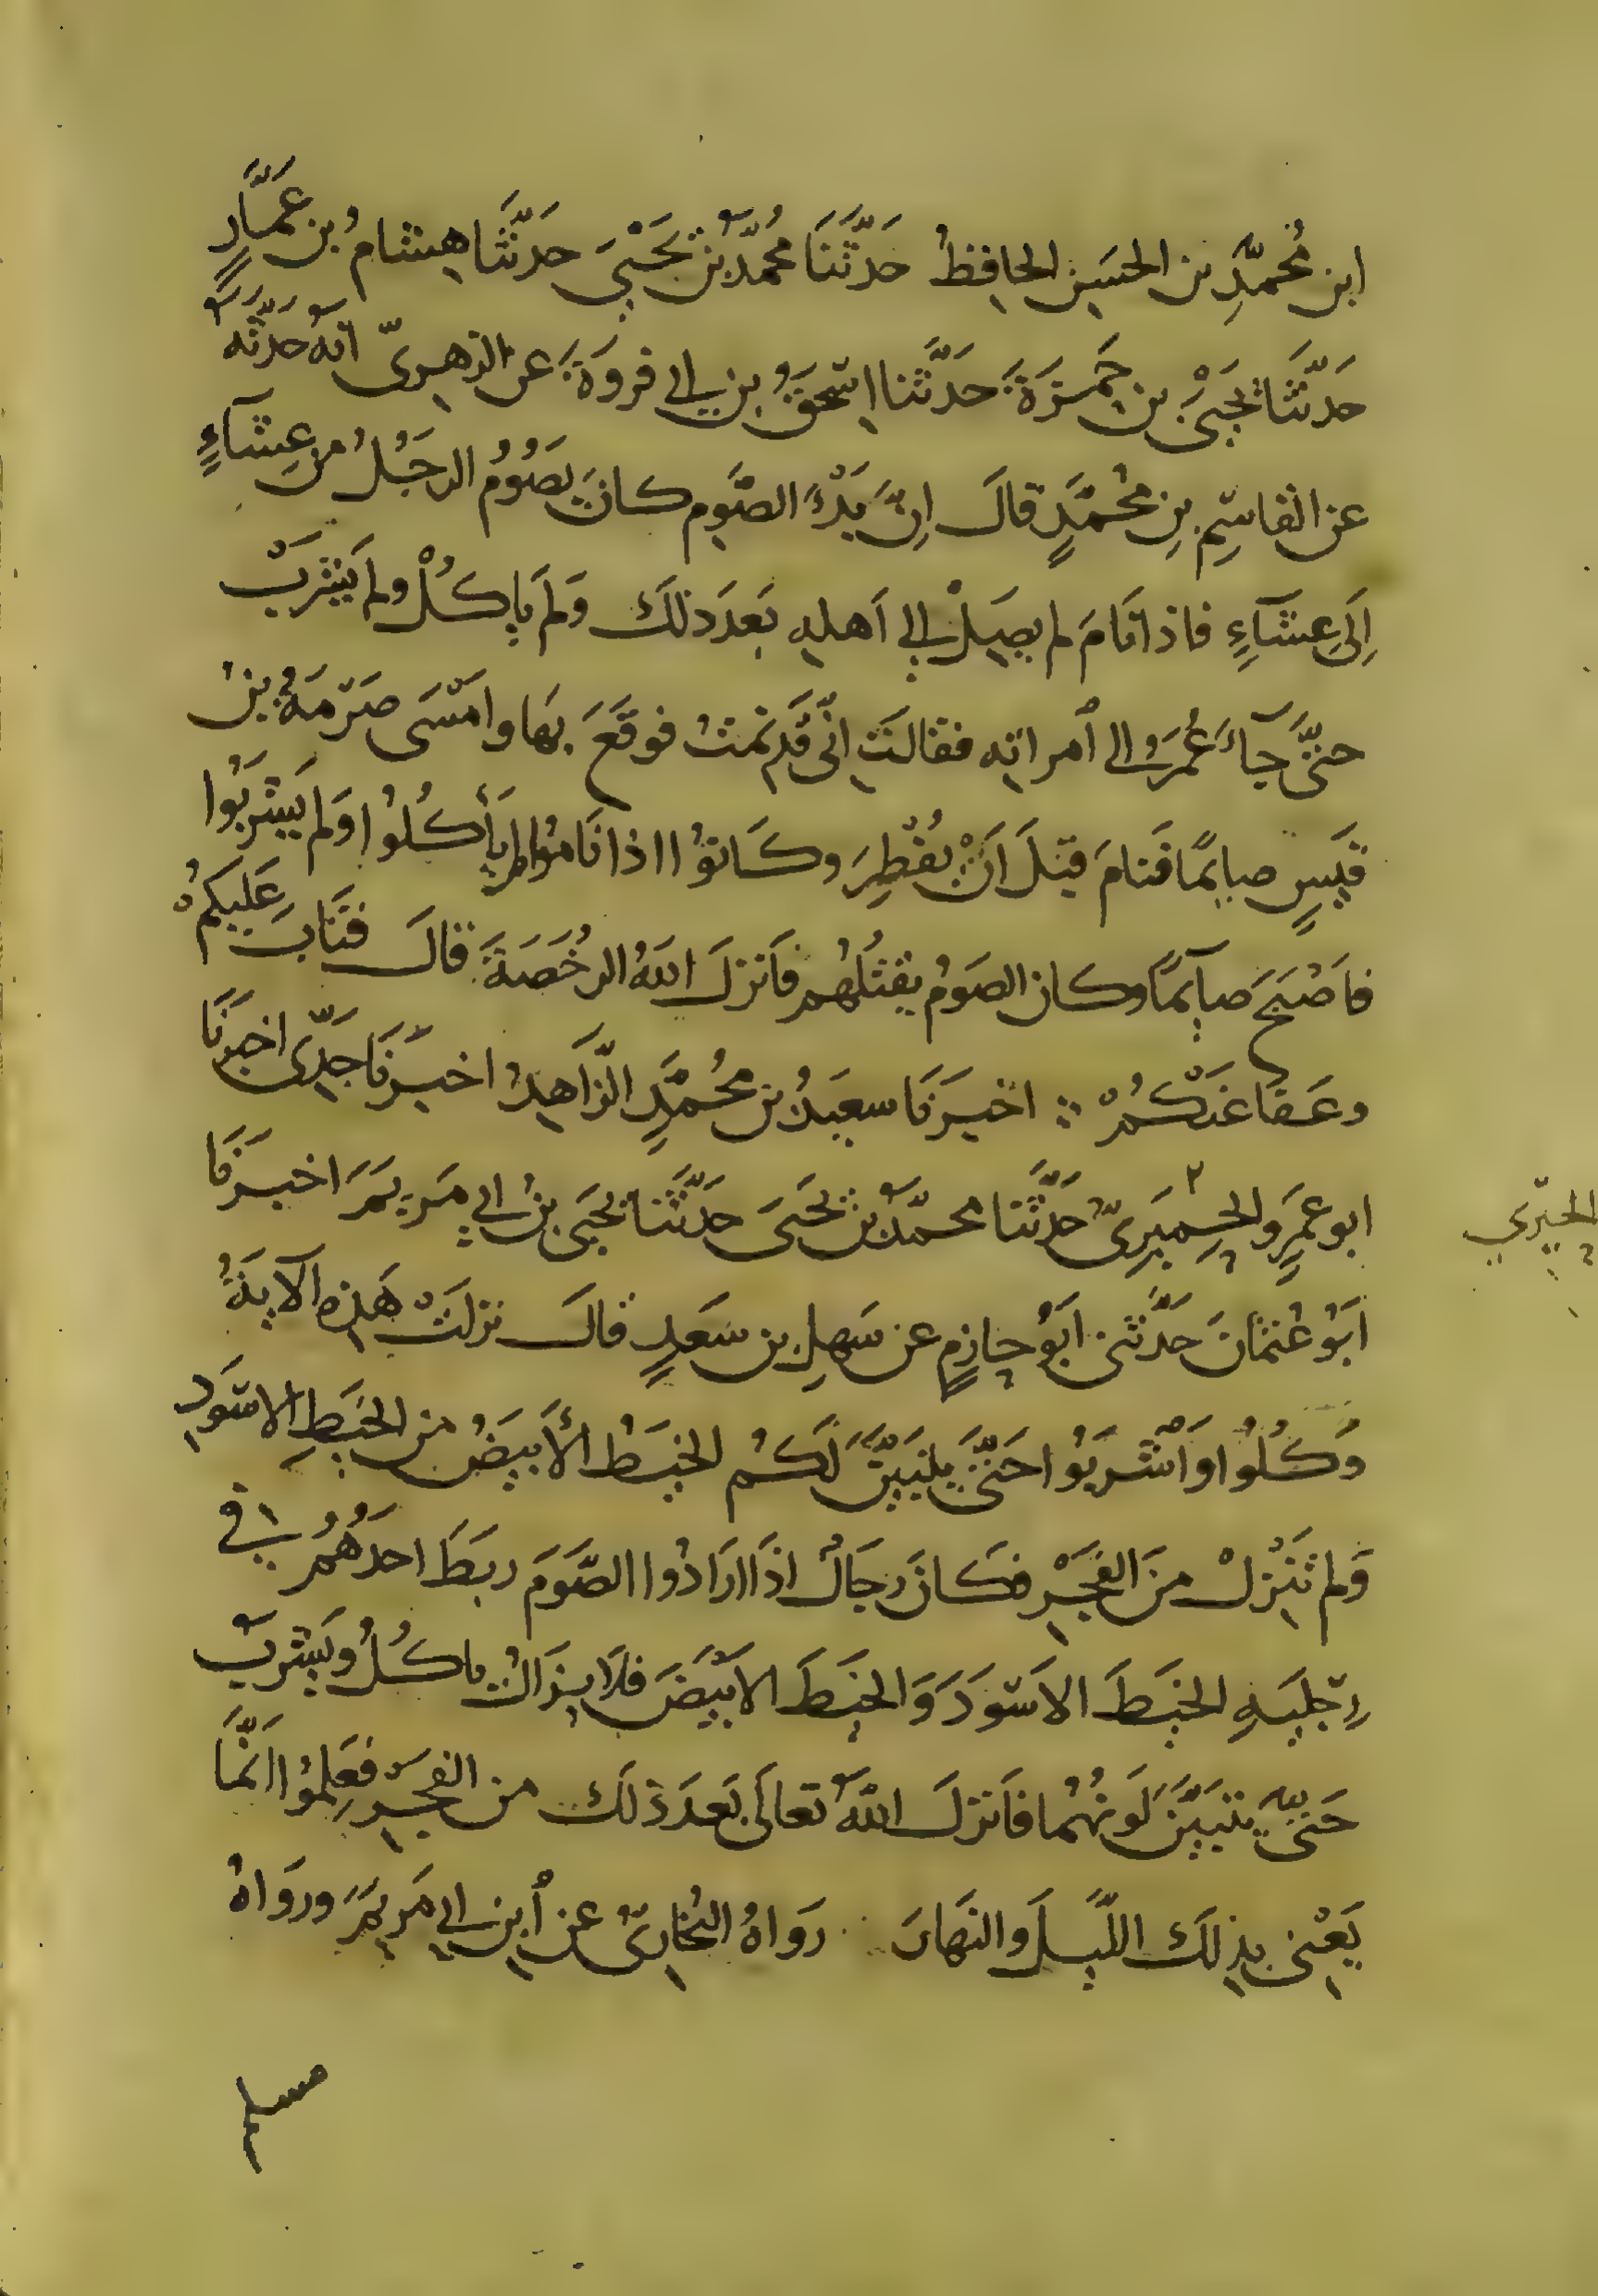 ابن مُحمّدِ بن الحسَين الحافِظُ حَدَّثَنَا مُحمّدُ بنُ يَحْيَى حَدثَّنا هِشامُ بن عمَّارٍ
حَدثَّنَا يَحيَى بن حَمزَةَ حَدَّثنا اسْحَقُ بن ابى فروَةَ عن الزهرِىّ انّهُ حَدثَّهُ
عن القاسِمِ بنِ مُحمَّدٍ قالَ اِنَّ بَدْءَ الصَّومِ كانَ يَصُوُمُ الرجُلُ من عِشَآءٍ
اِلَى عِشَآءٍ فاذا نَامَ لم يصِلْ الى اَهلِهِ بَعدَ ذلكَ وَلَم ياكُلْ ولم يَشرَبْ
حتىَّ جَآءَ عُمَرُ الى أمراتِه فقالَت اِنّى قَد نمتُ فوقَعَ بِهَا وامْسَى صَرْمَةُ بنُ
قَيسٍ صايمًا فنامَ قبلَ اَنْ يُفْطِرَ وكَانوُا اذا نَامُوا لم يَأكُلُوا وَلم يَشرَبُوا
فاَصْبَحَ صآيمًا وكان الصَومُ يقتُلُهُم فاَنزلَ اللهُ الرخُصَةَ قالَ فتَابَ عَلَيكُمْ
وعَفَا عَنكُمْ ∴ اخبَرنَا سعيدُ بن مُحمَّدٍ الزَّاهِدُ اخبَرنَا جَدِّى اخبرنَا
ابو عمَرٍو الحِميَرِىّ حَدَّثَنَا محمّدُ بن يَحيَى حَدَّثَنا يَحيَى بنُ ابى مَريمَ اخبَرَنَا
الحِيْري
ابَوُ غَسَّانَ حَدَّثَنى ابَوُ حازِمٍ عن سَهلِ بن سَعدٍ قالَ نزلَتْ هَذِه الآيةُ
وَكُلُوا وَاشْرَبُوا حَتىَّ يتَبَيَّنَ لَكمُ الخيطُ الأَبيَضُ من الخَيطِ الاسْوَدِ
وَلم تنزِلْ منَ الفَجْرِ فكانَ رجَالٌ اذَا ارَادُوا الصَّوَمَ ربَطَ احَدُهُمُ فى
رِجليَهِ الخيَطَ الاسْوَدَ وَالخيَطَ الابْيَضَ فلَا يزَالُ ياكُلُ ويَشرَبُ
حَتىّ يتبيَّنَ لَونهُما فاَنزلَ اللهُ تعالَى بَعدَ ذلكَ من الفجرِ فعَلِمُوا اَنَّمَا
يَعْنِى بِذلكَ اللَّيلَ وَالنهَارَ ∴ رَوَاهُ البُخَارِىّ عن أبنِ ابى مَريمَ وروَاهُ
مسلم